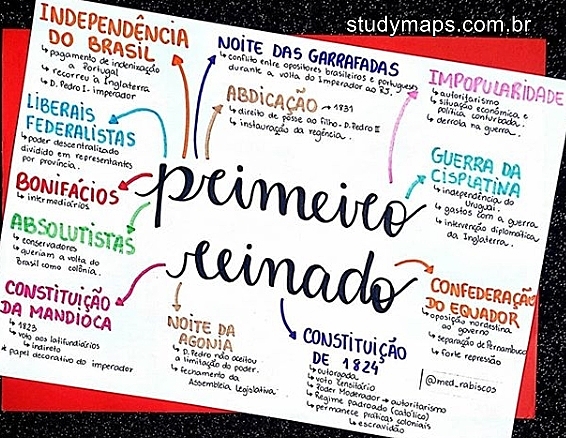 studymaps.com.br
INDEPENDÊNCIA
DO BRASIL
↳ pagamento de indenização
a Portugal
↳ recorreu à Inglaterra
↳ D. Pedro I - imperador
NOITE DAS GARRAFADAS
↳ conflito entre opositores brasileiros e portugueses
durante a volta do Imperador ao RJ.
ABDICAÇÃO → 1831
↳ direito de posse ao filho - D. Pedro II
↳ instauração da regência.
IMPOPULARIDADE
↳ autoritarismo
↳ situação econômica e
política conturbada.
↳ derrota na guerra.
LIBERAIS
FEDERALISTAS
↳ poder descentralizado
dividido em representantes
por província.
GUERRA DA
CISPLATINA
↳ independência do
Uruguai.
↳ gastos com a guerra
↳ intervenção diplomática
da Inglaterra.
BONIFÁCIOS
↳ intermediários
primeiro
reinado
ABSOLUTISTAS
↳ conservadores
↳ queriam a volta do
Brasil como colônia.
CONSTITUIÇÃO
DA MANDIOCA
↳ 1823
↳ voto aos latifundiários
↳ indireto
* papel decorativo do imperador
NOITE DA
AGONIA
↳ D. Pedro não aceitou
a limitação do poder.
↳ fechamento da
Assembleia Legislativa.
CONSTITUIÇÃO
DE 1824
↳ outorgada
↳ voto censitário
↳ Poder Moderador → autoritarismo
↳ Regime padroado (católico)
↳ permanece práticas coloniais
↳ escravidão
CONFEDERAÇÃO
DO EQUADOR
↳ oposição nordestina
ao governo
↳ separação de Pernambuco
↳ forte repressão
@med_rabiscos